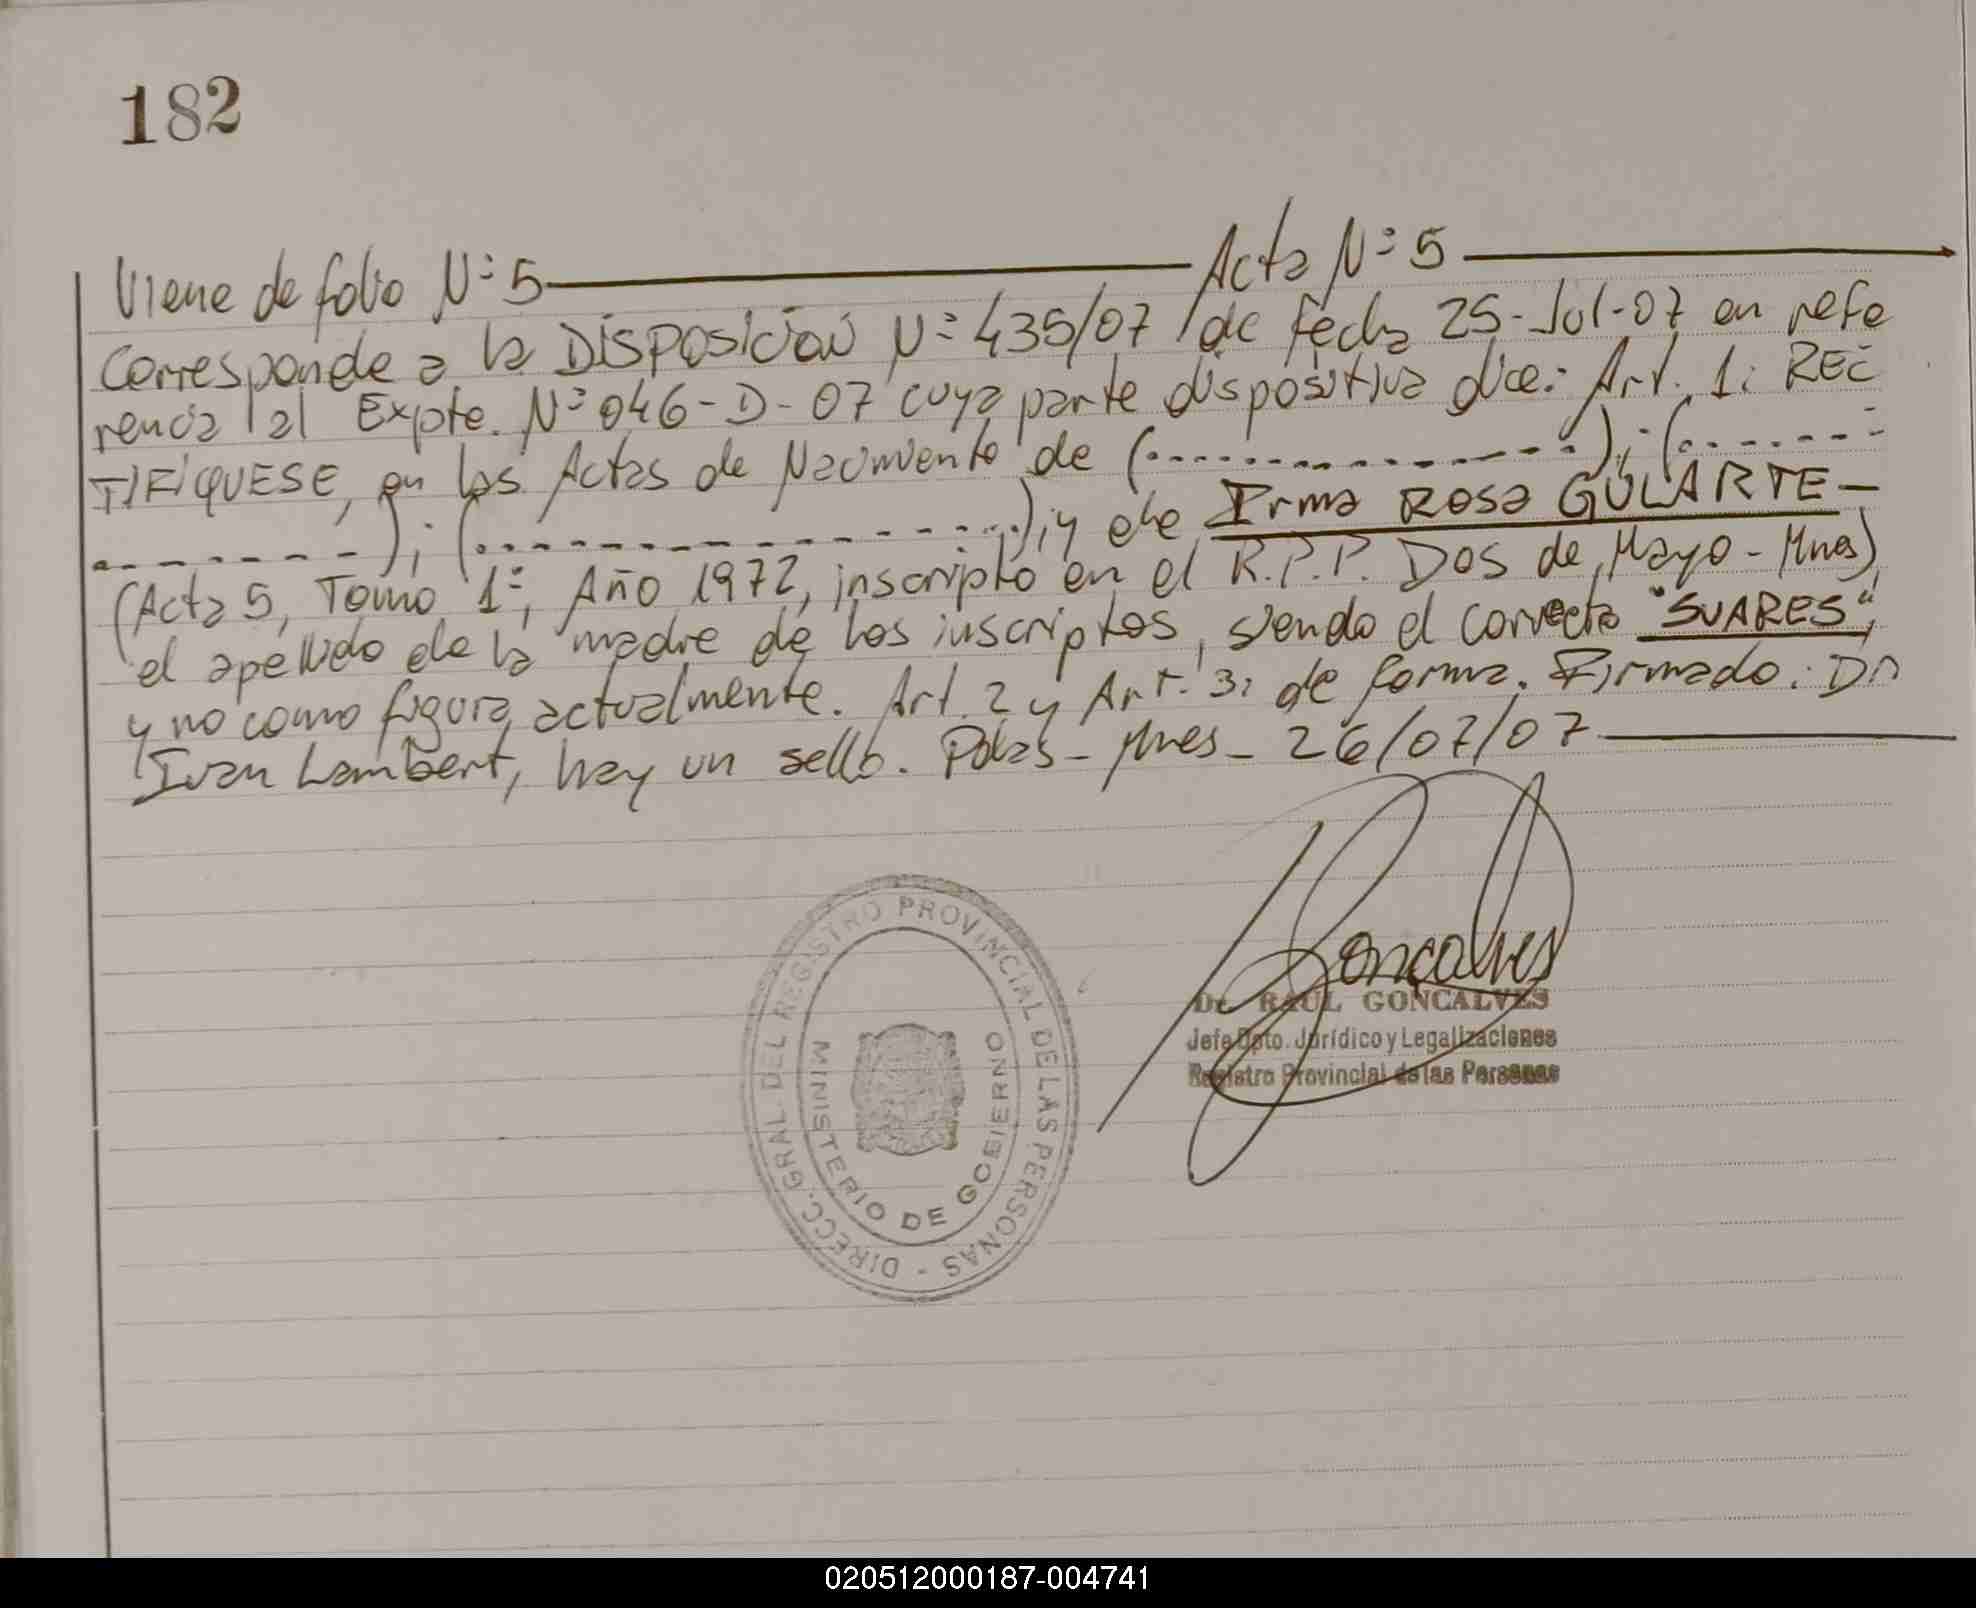 182
Viene de folio Nº 5 ———— Acta Nº 5 ————
Corresponde a la DISPOSICIÓN Nº 435/07 de fecha 25-Jul-07 en refe
rencia al Expte. Nº 046-D-07 cuya parte dispositiva dice: Art. 1: REC
TIFÍQUESE, en las Actas de Nacimiento de (..............); (.......
.......); (..................); y de Irma Rosa GULARTE-
(Acta 5, Tomo 1º, Año 1972, inscripto en el R.P.P. Dos de Mayo - Mnes)
el apellido de la madre de los inscriptos, siendo el correcto "SUARES",
y no como figura actualmente. Art. 2 y Art. 3: de forma. Firmado: Dn
Ivan Lambert, hay un sello. Pdas - Mnes - 26/07/07 ————
Gonçalves
Dr. RAUL GONCALVES
Jefe Dpto. Jurídico y Legalizaciones
Registro Provincial de las Personas
DIRECC. GRAL. DEL REGISTRO PROVINCIAL DE LAS PERSONAS -
MINISTERIO DE GOBIERNO
020512000187-004741